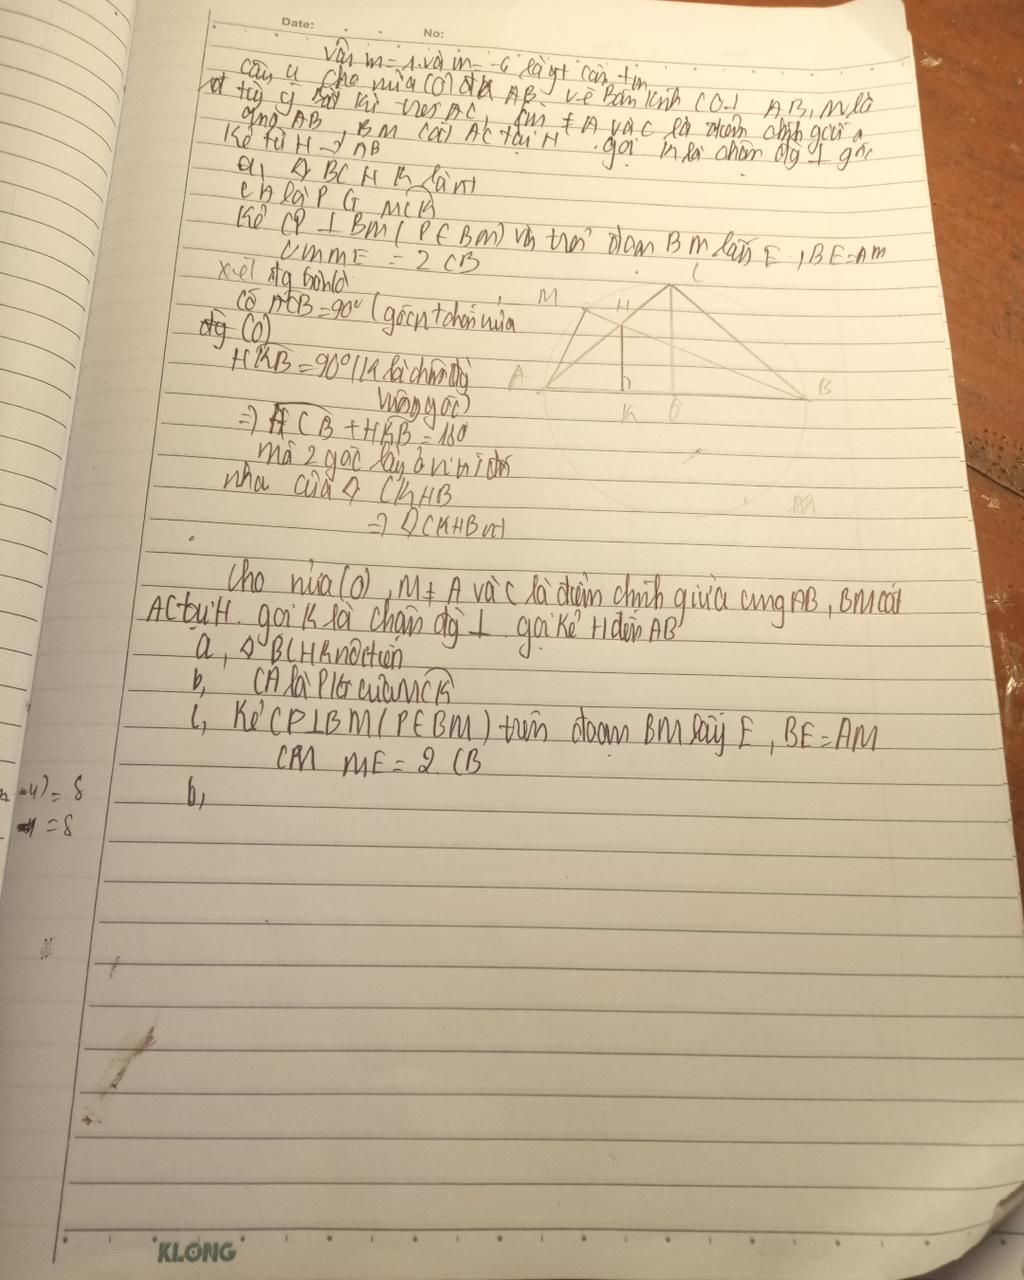 Date: No:
Vậy m=1 và m=-6 là gt cần tìm
Câu 4 Cho nửa (O) đk AB vẽ Bán kính CO⊥ AB, M là
tùy ý Bất kì trên AC, ≠ A và C là điểm chính giữa
cung AB, BM cắt AC tại H. gọi K là chân đg ⊥ góc
Kẻ từ H → AB
a, ◊ BCHK là nt
CA là PG MCK
Kẻ CP ⊥ BM (P∈BM) và trên đoạn BM lấy E, BE=AM
CM ME = 2 CB
xét đg tròn (O)
Có ACB=90° (góc nt chắn nửa
đg (O)
HKB=90° (K là chân đg
vuông góc)
=> ACB + HKB = 180
mà 2 góc này ở vị trí đối
nhau của ◊ CKHB
=> ◊CKHB nt
C
M H
A B
K O
Cho nửa (O), M ≠ A và C là điểm chính giữa cung AB, BM cắt
AC tại H. gọi K là chân đg ⊥ gọi Kẻ H đến AB
a, ◊ BCHK nội tiến
b, CA là P/G của MCK
c, Kẻ CP⊥BM (P∈BM) trên đoạn BM lấy E, BE=AM
CM ME= 2 CB
b,
-4)= 8
=8
KLONG